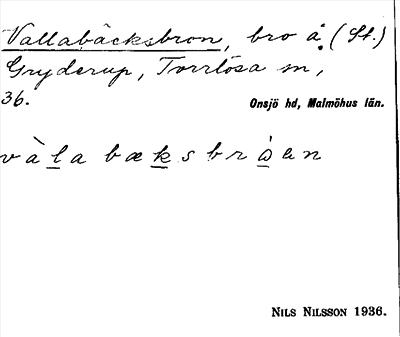 Vallabäcksbron, bro å. (St.)
Gryderup, Torrlösa sn,
36.
Onsjö hd, Malmöhus län.
vàla bæksbròen
NILS NILSSON 1936.